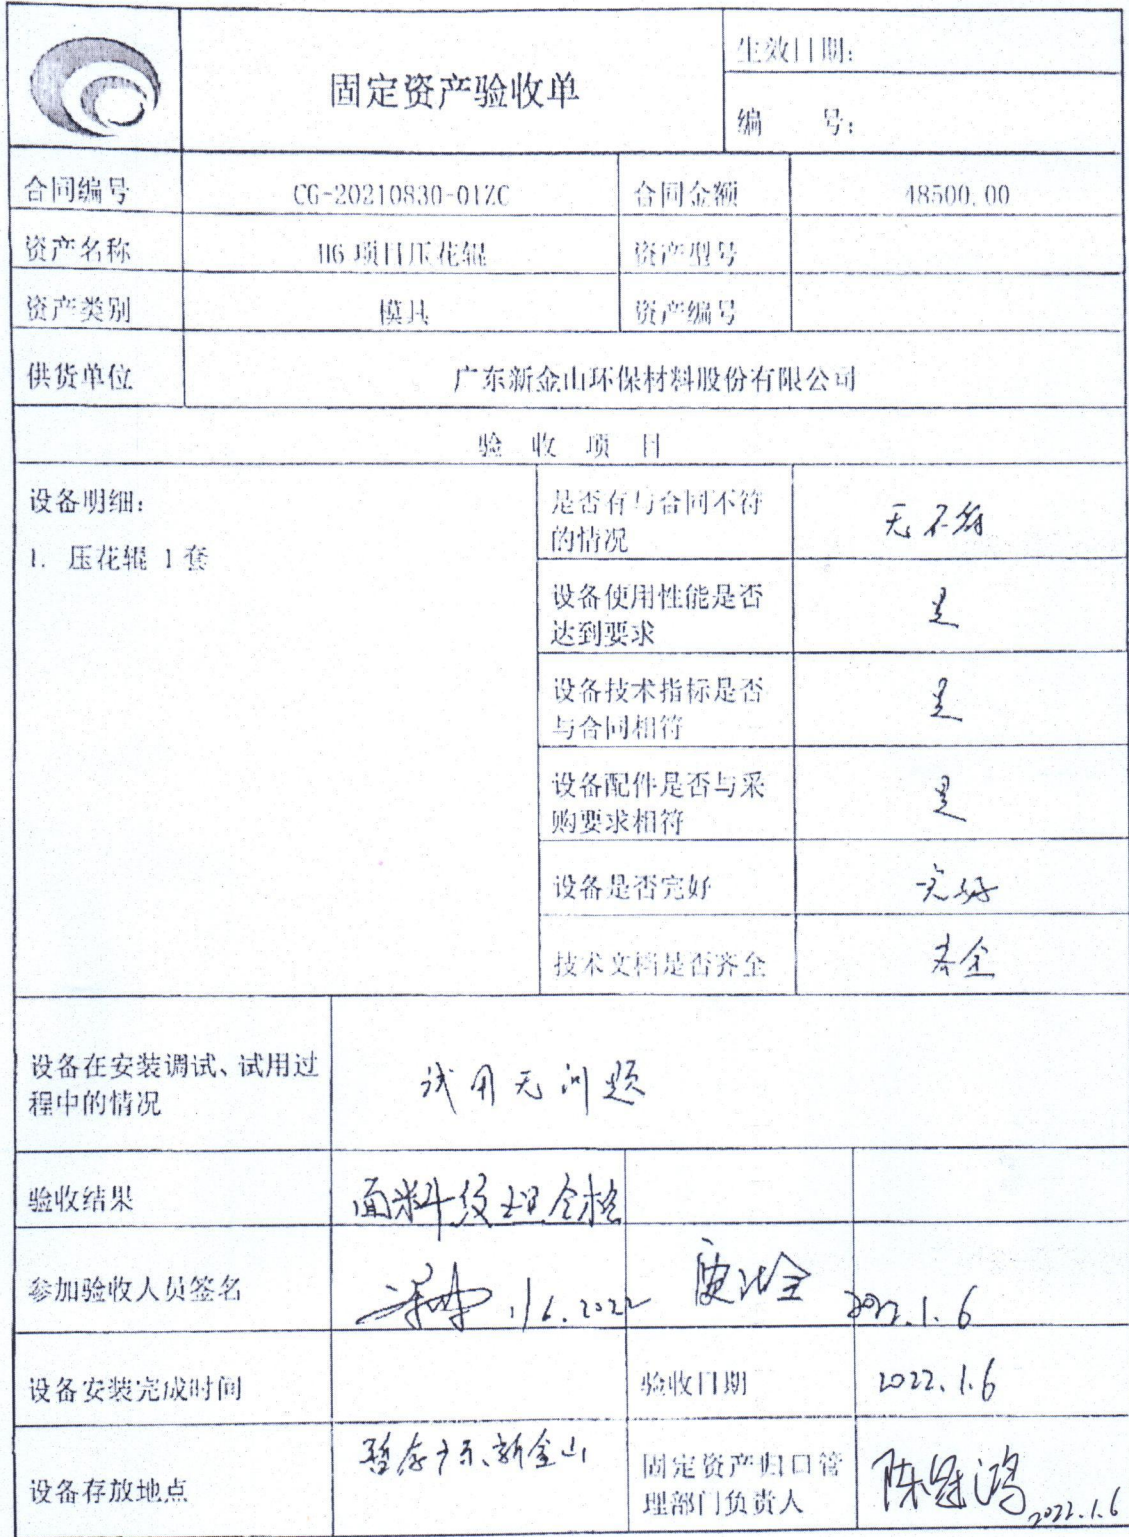 固定资产验收单
生效日期:
编 号:
合同编号 CG-20210830-01ZC 合同金额 48500.00
资产名称 H6 项目压花辊 资产型号
资产类别 模具 资产编号
供货单位 广东新金山环保材料股份有限公司
验 收 项 目
设备明细:
1. 压花辊 1 套
是否有与合同不符
的情况
无不符
设备使用性能是否
达到要求
是
设备技术指标是否
与合同相符
是
设备配件是否与采
购要求相符
是
设备是否完好 完好
技术文档是否齐全 齐全
设备在安装调试、试用过
程中的情况
试用无问题
验收结果 面料纹理合格
参加验收人员签名 1/6.2022 2022.1.6
设备安装完成时间 验收日期 2022.1.6
设备存放地点 暂存广东新金山
固定资产归口管
理部门负责人
陈冠鸿 2022.1.6